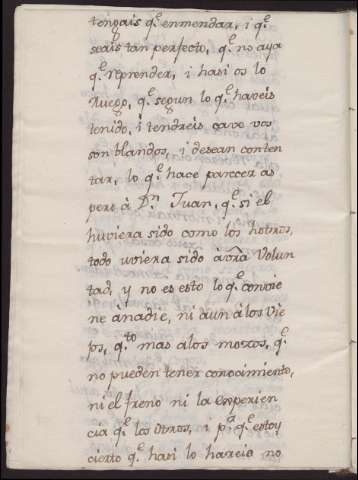 tengais q.^e enmendar, i q.^e
seais tan perfecto, q.^e no aya
q.^e reprender, i hasi os lo
Ruego, q.^e segun lo q.^e haveis
tenido, i tendreis cave vos
son blandos, i desean conten
tar, lo q.^e hace parecer as
pero à D.^n Juan, q.^e si el
huviera sido como los hotros,
todo uviera sido à vr̃a Volun
tad, y no es esto lo q.^e convie
ne à nadie, ni aun à los vie
jos, q.^to mas a los mozos, q.^e
no pueden tener conocimiento,
ni el freno ni la experien
cia q.^e los otros; i p.^r q.^e estoy
cierto q.^e hasi lo hareis no